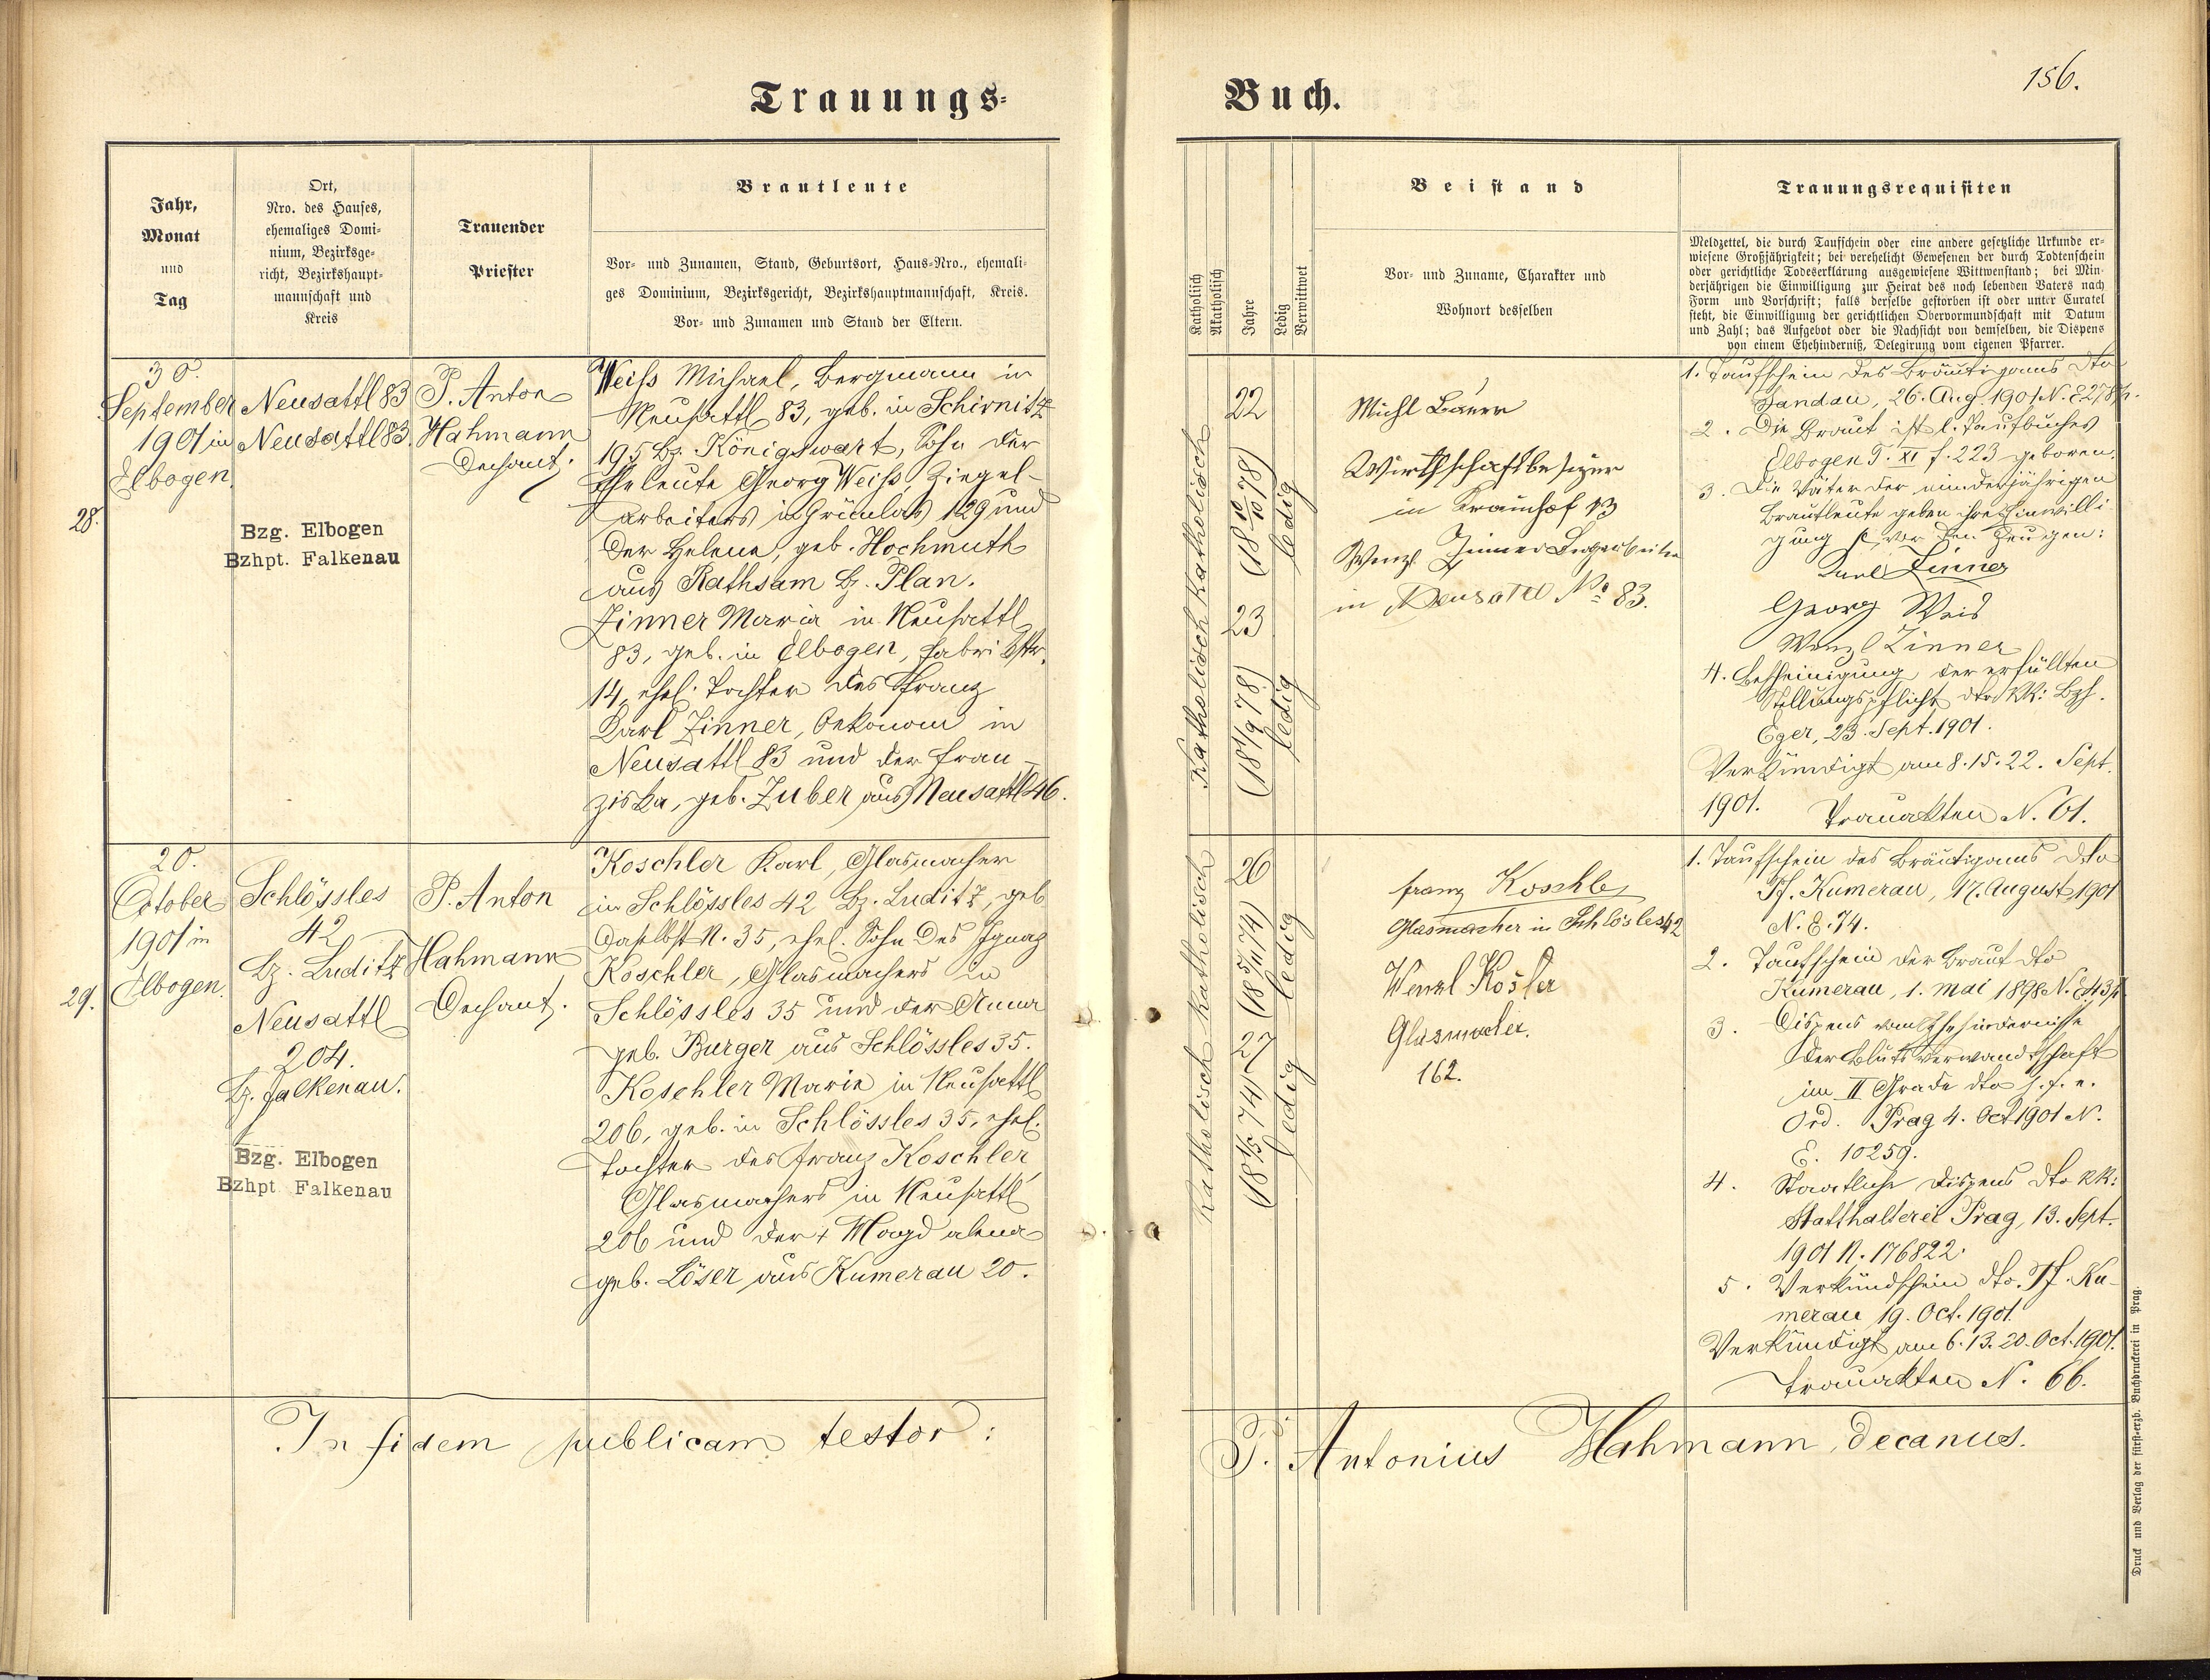 Trauungs-
Jahr,
Monat
und
Tag
Ort,
Nro. des Hauses,
ehemaliges Domi-
nium, Bezirksge-
richt, Bezirkshaupt-
mannschaft und
Kreis
Trauender
Priester
Brautleute
Vor- und Zunamen, Stand, Geburtsort, Haus-Nro., ehemali-
ges Dominium, Bezirksgericht, Bezirkshauptmannschaft, Kreis.
Vor- und Zunamen und Stand der Eltern.
28.
30.
September
1901 in
Elbogen.
Neusattl 83
Neusattl 83.
Bzg. Elbogen
Bzhpt. Falkenau
P. Anton
Hahmann
Dechant.
Weiss Michael, Bergmann in
Neusattl 83, geb. in Schirnitz
195 Bz. Königswart, Sohn der
Eheleute Georg Weiss Ziegel-
arbeiters in Grünlas 129 und
der Helena, geb. Hochmuth
aus Rathsam Bz. Plan.
Zinner Maria in Neusattl
83, geb. in Elbogen, Fabrikstr.
14, ehel. Tochter des Franz
Karl Zinner, Oekonom in
Neusattl 83 und der Fran-
ziska, geb. Zuber aus Neusattl 46.
29.
20.
October
1901 in
Elbogen.
Schlössles
42
Bz. Luditz
Neusattl
204.
Bz. Falkenau.
Bzg. Elbogen
Bzhpt Falkenau
P. Anton
Hahmann
Dechant.
Koschler Karl, Glasmacher
in Schlössles 42 Bz. Luditz, geb.
daselbst N. 35, ehel. Sohn des Ignaz
Koschler, Glasmachers in
Schlössles 35 und der Anna
geb. Burger aus Schlössles 35.
Koschler Maria in Neusattl
206, geb. in Schlössles 35, ehel.
Tochter des Franz Koschler,
Glasmachers in Neusattl
206 und der + Magdalena
geb. Löser aus Kumerau 20.
In fidem publicam testor:
Buch.
156.
Katholisch
Akatholisch
Jahre
Ledig
Verwittwet
Beistand
Vor- und Zuname, Charakter und
Wohnort desselben
Trauungsrequisiten
Meldzettel, die durch Taufschein oder eine andere gesetzliche Urkunde er-
wiesene Großjährigkeit; bei verehelicht Gewesenen der durch Todtenschein
oder gerichtliche Todeserklärung ausgewiesene Wittwenstand; bei Min-
derjährigen die Einwilligung zur Heirat des noch lebenden Vaters nach
Form und Vorschrift; falls derselbe gestorben ist oder unter Curatel
steht, die Einwilligung der gerichtlichen Obervormundschaft mit Datum
und Zahl; das Aufgebot oder die Nachsicht von demselben, die Dispens
von einem Ehehinderniß, Delegirung vom eigenen Pfarrer.
Katholisch
22
(18 10/10 78)
ledig
Katholisch
23
(18 1/9 78)
ledig
Michl Bäuer
Wirthschaftbesitzer
in Kramhof 13
Wenzl Zinner Bergarbeiter
in Neusattl No 83.
1. Taufschein des Bräutigams dto
Sandau, 26. Aug. 1901 N. E. 278
2. Die Braut ist l. Taufbuches
Elbogen T. XI f. 223 geboren.
3. Die Väter der minderjährigen
Brautleute geben ihre Einwilli-
gung vor den Zeugen:
Karl Zinner
Georg Weis
Wenzl Zinner
4. Bescheinigung der erfüllten
Stellungspflicht dto KK: Bzh.
Eger, 23. Sept. 1901.
Verkündigt am 8. 15. 22. Sept.
1901. Trauakten N. 61.
Katholisch
26
(18 5/11 74)
ledig
Katholisch
27
(18 1/5 74)
ledig
Franz Koschler
Glasmacher in Schlösles 42
Wenzl Kösler
Glasmacher.
162.
1. Taufschein des Bräutigams dto
Pf. Kumerau, 17. August 1901
N. E. 74.
2. Taufschein der Braut dto
Kumerau, 1. Mai 1898 N. E. 43
3. Dispens vom Ehehindernisse
der Blutsverwandtschaft
im II Grade dto f. e.
Ord. Prag 4. Oct 1901 N.
E. 10259.
4. Staatliche Dispens dto KK:
Statthalterei Prag, 13. Sept.
1901 N. 176822.
5. Verkündschein dto. Pf. Ku-
merau 19. Oct. 1901.
Verkündigt am 6. 13. 20. Oct. 1901.
Trauakten N. 66.
P. Antonius Hahmann, decanus.
Druck und Verlag der fürst-erzb. Buchdruckerei in Prag.